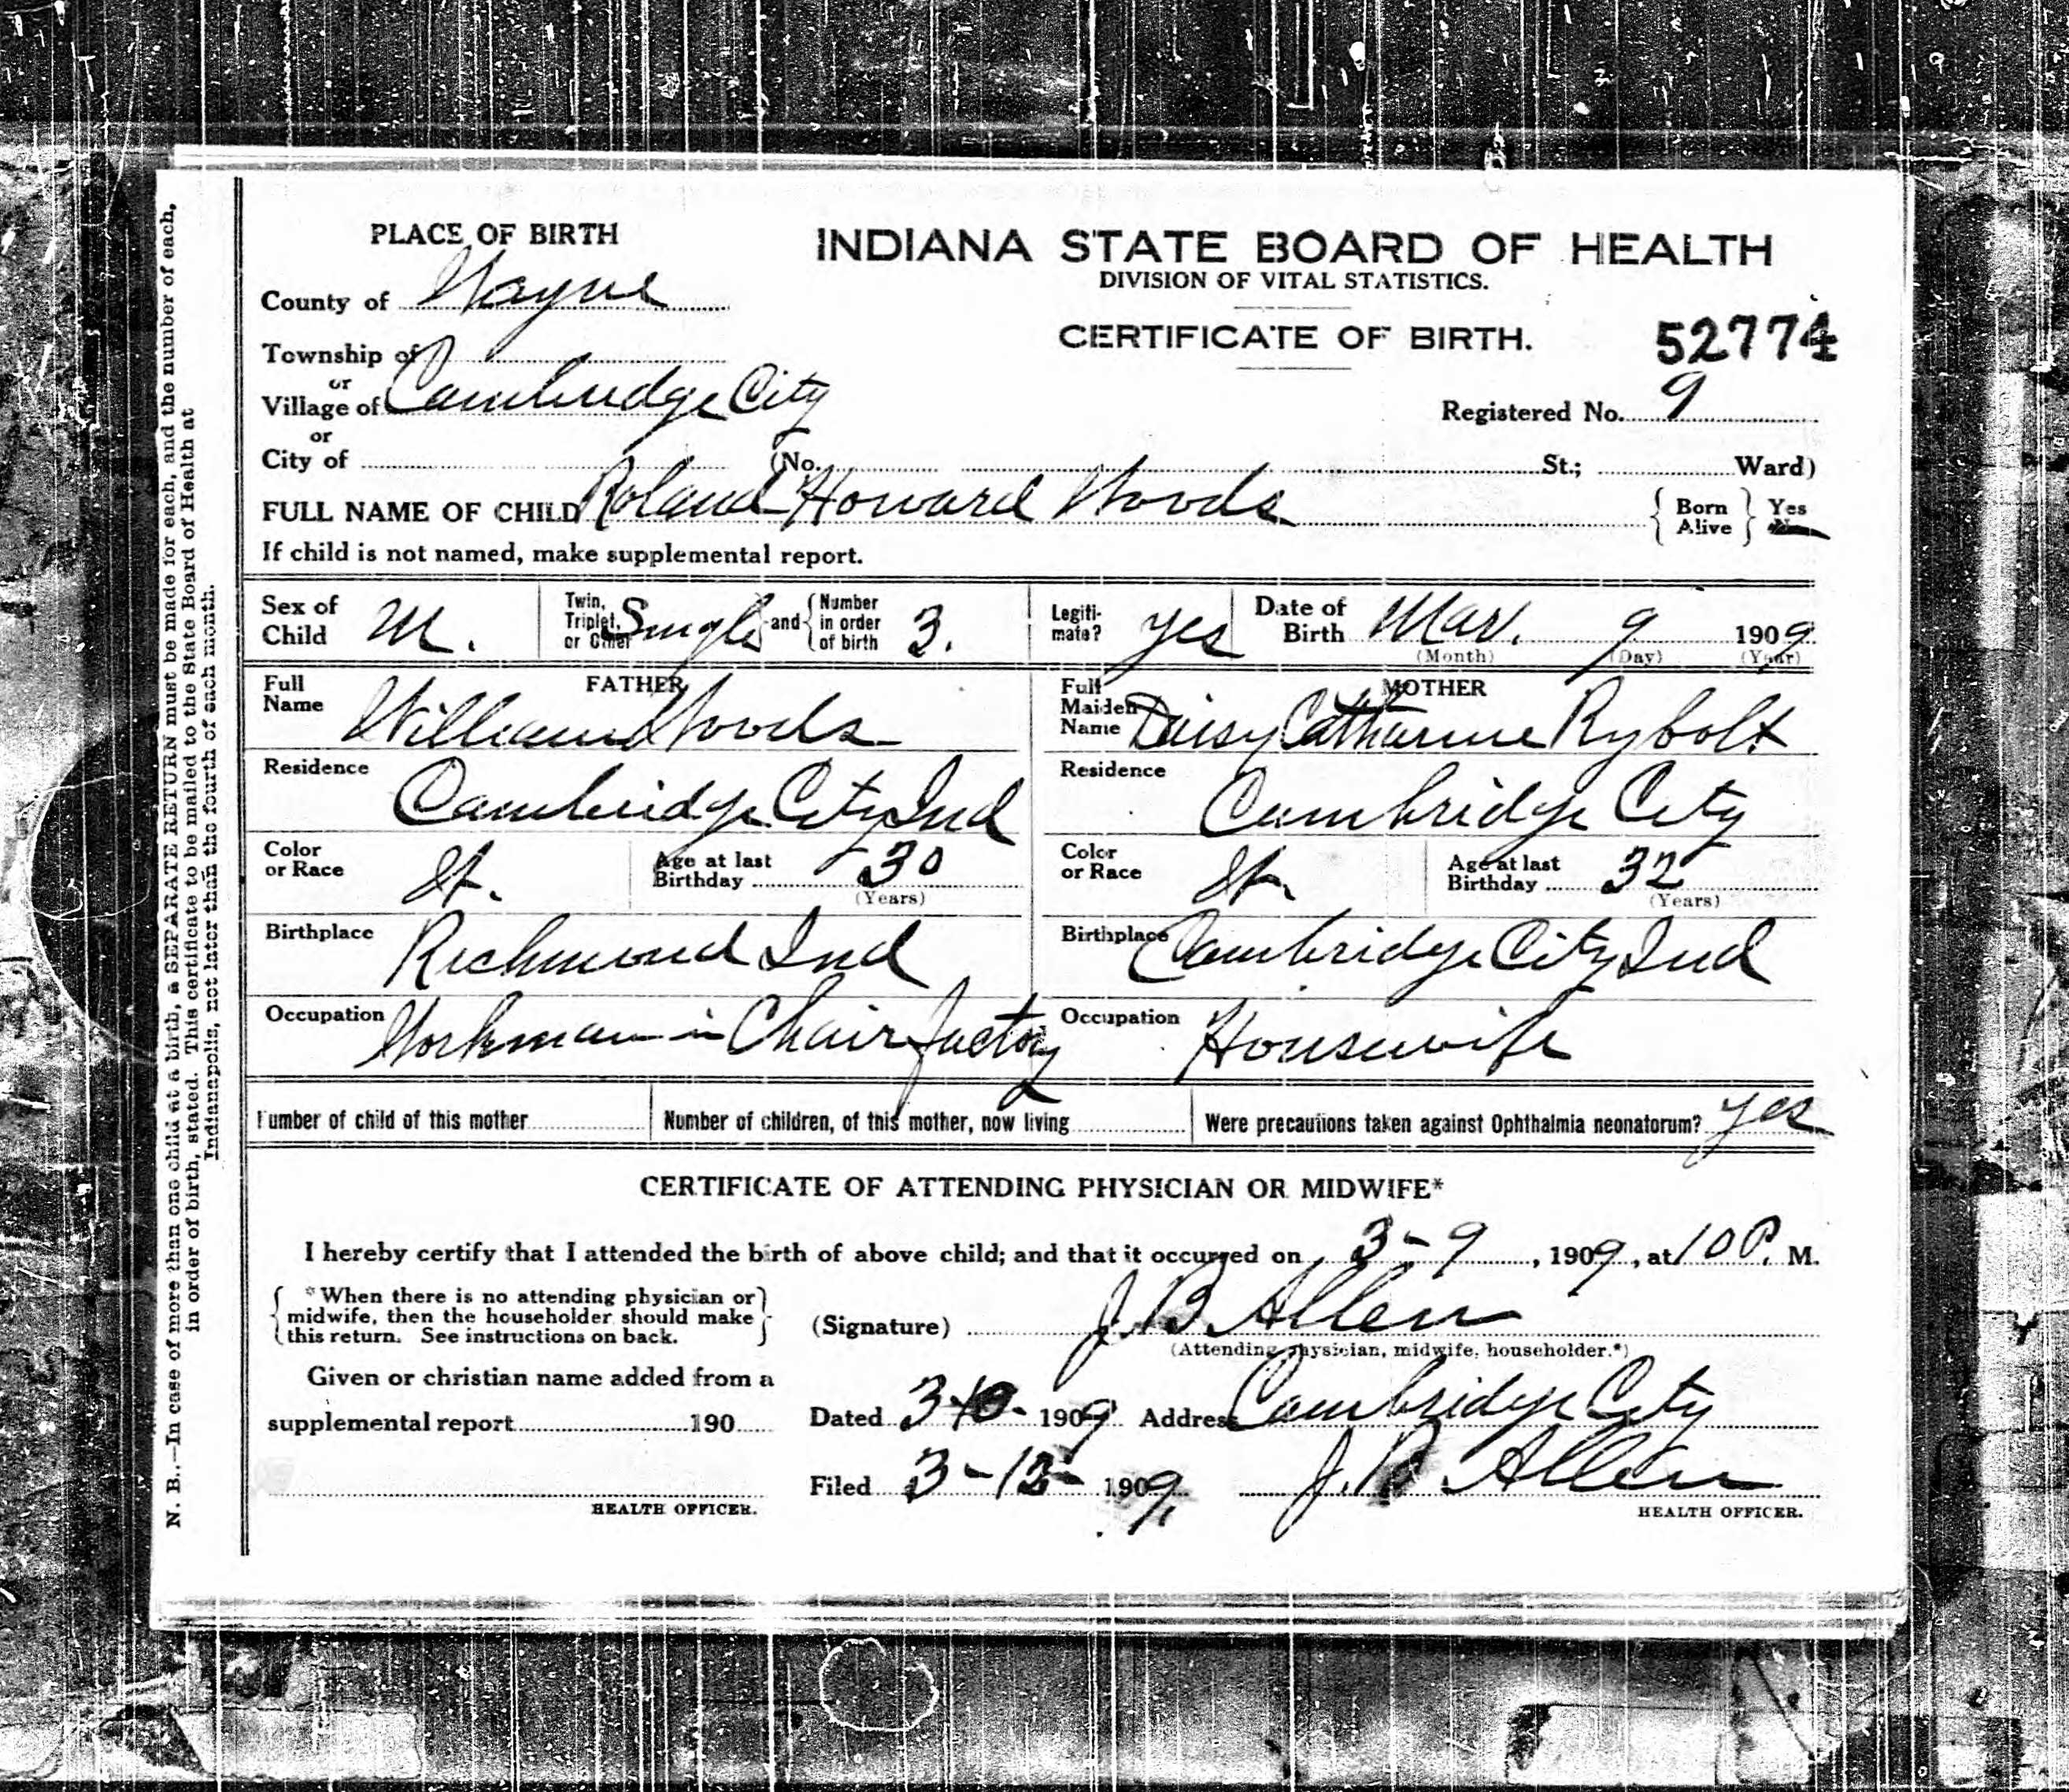 PLACE OF BIRTH
INDIANA STATE BOARD OF HEALTH
DIVISION OF VITAL STATISTICS.
County of Wayne
CERTIFICATE OF BIRTH.
52774
Township of
or
Village of Cambridge City
Registered No. 9
or
City of (No. St.; Ward)
FULL NAME OF CHILD Roland Howard Woods
Born Alive Yes
If child is not named, make supplemental report.
Sex of Child M.
Twin, Triplet, or Other Single and Number in order of birth 3.
Legiti-mate? yes
Date of Birth Mar. 9 1909
(Month) (Day) (Year)
FATHER
Full Name William Woods
MOTHER
Full Maiden Name Daisy Catharine Rybolt
Residence Cambridge City Ind
Residence Cambridge City
Color or Race
Age at last Birthday 30
(Years)
Color or Race
Age at last Birthday 32
(Years)
Birthplace Richmond Ind
Birthplace Cambridge City Ind
Occupation Workman in Chair Factory
Occupation Housewife
Number of child of this mother
Number of children, of this mother, now living
Were precautions taken against Ophthalmia neonatorum? yes
CERTIFICATE OF ATTENDING PHYSICIAN OR MIDWIFE*
I hereby certify that I attended the birth of above child; and that it occurred on 3-9, 1909, at 10 P. M.
*When there is no attending physician or
midwife, then the householder should make
this return. See instructions on back.
(Signature) J. B. Allen
(Attending physician, midwife, householder.*)
Given or christian name added from a
supplemental report 190
Dated 3-10- 1909 Address Cambridge City
Filed 3-13- 1909 J. B. Allen
HEALTH OFFICER.
HEALTH OFFICER.
N. B.--In case of more than one child at a birth, a SEPARATE RETURN must be made for each, and the number of each,
in order of birth, stated. This certificate to be mailed to the State Board of Health at
Indianapolis, not later than the fourth of each month.